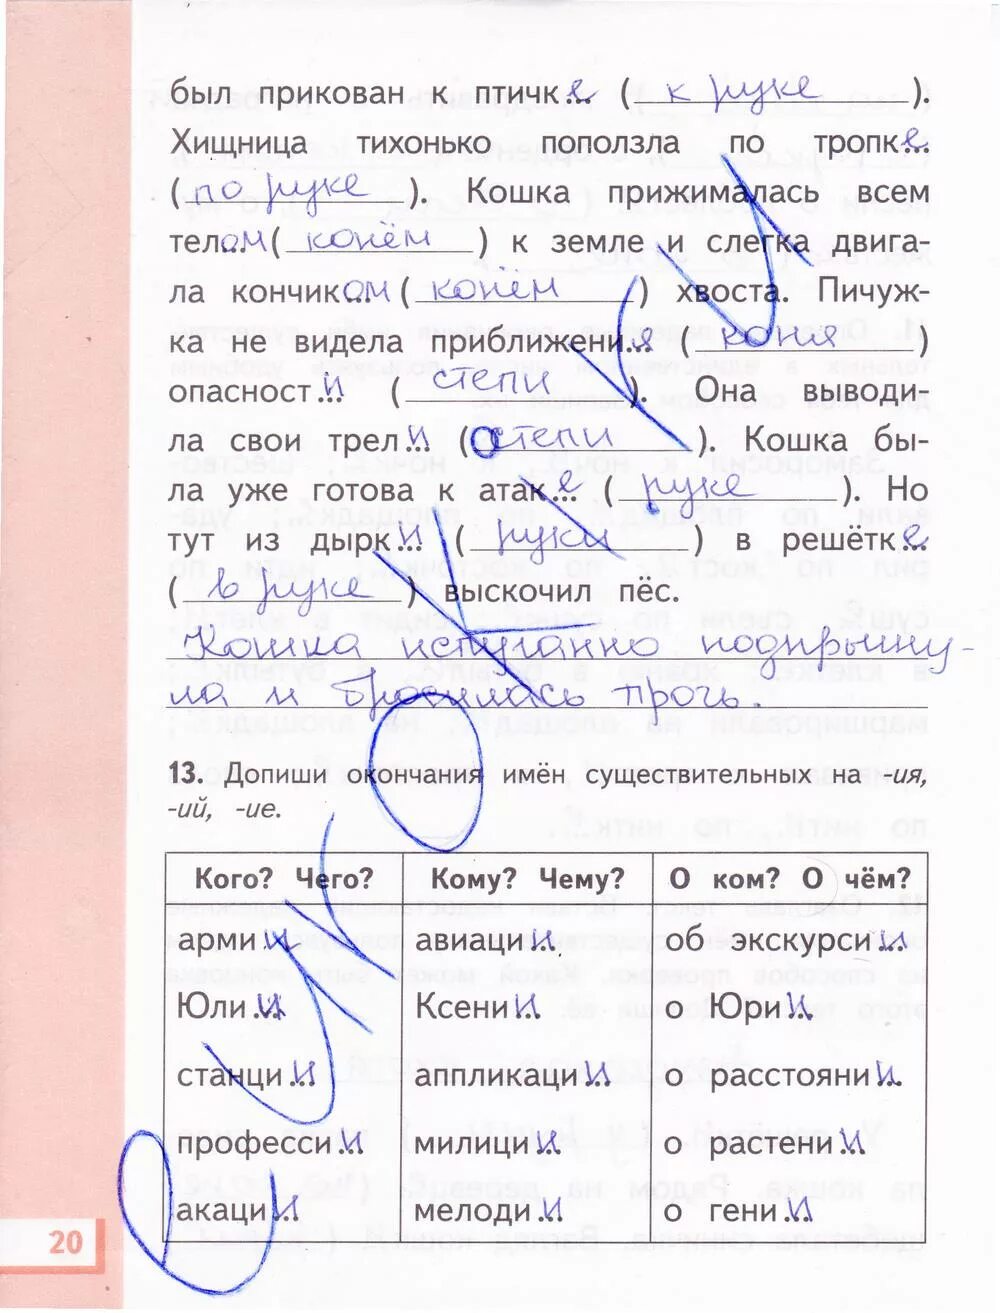 был прикован к птичке (к руке).
Хищница тихонько поползла по тропке
(по руке). Кошка прижималась всем
телом (конём) к земле и слегка двига-
ла кончиком (конём) хвоста. Пичуж-
ка не видела приближение (коня)
опасности (степи). Она выводи-
ла свои трели (степи). Кошка бы-
ла уже готова к атаке (руке). Но
тут из дырки (руки) в решётке
(в руке) выскочил пёс.
Кошка испуганно подпрыгну-
ла и бросилась прочь.
13. Допиши окончания имён существительных на -ия,
-ий, -ие.
Кого? Чего? Кому? Чему? О ком? О чём?
армии авиации об экскурсии
Юлии Ксении о Юрии
станции аппликации о расстоянии
профессии милиции о растении
акации мелодии о гении
20